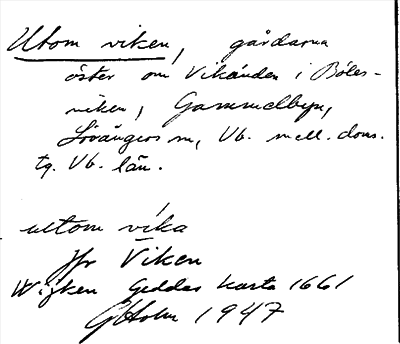 Utom viken, gårdarna
öster om Vikänden i Böles-
viken, Gammelbyn,
Lövångers sn, Vb. mell. doms.
tg. Vb. län.
utom vika
Jfr Viken
Wijken Geddas karta 1661
GHolm 1947